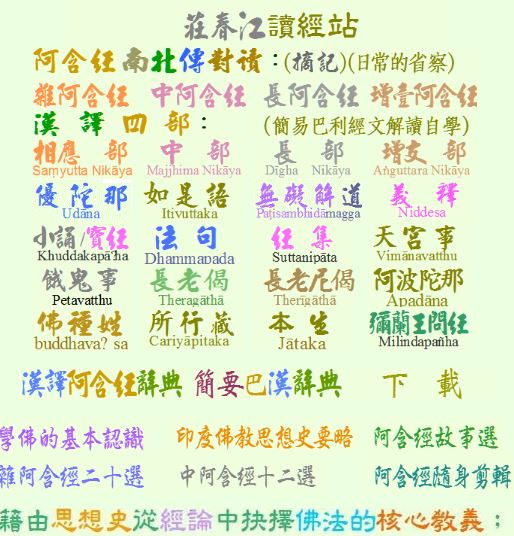 莊春江讀經站
阿含经南北傳對读：(摘記)(日常的省察)
雜阿含经 中阿含经 長阿含经 增壹阿含经
漢譯四部： (簡易巴利經文解讀自學)
相應部 中部 長部 增支部
Saṃyutta Nikāya Majjhima Nikāya Dīgha Nikāya Aṅguttara Nikāya
優陀那 如是語 無礙解道 義釋
Udāna Itivuttaka Paṭisambhidāmagga Niddesa
小誦/寶经 法句 经集 天宮事
Khuddakapā?ha Dhammapada Suttanipāta Vimānavatthu
餓鬼事 長老偈 長老尼偈 阿波陀那
Petavatthu Theragāthā Therīgāthā Apadāna
佛種姓 所行藏 本生 彌蘭王問经
buddhava? sa Cariyāpitaka Jātaka Milindapañha
漢譯阿含经辭典 簡要巴漢辭典 下載
學佛的基本認識 印度佛教思想史要略 阿含經故事選
雜阿含經二十選 中阿含經十二選 阿含經隨身剪輯
藉由思想史從經論中抉擇佛法的核心教義；